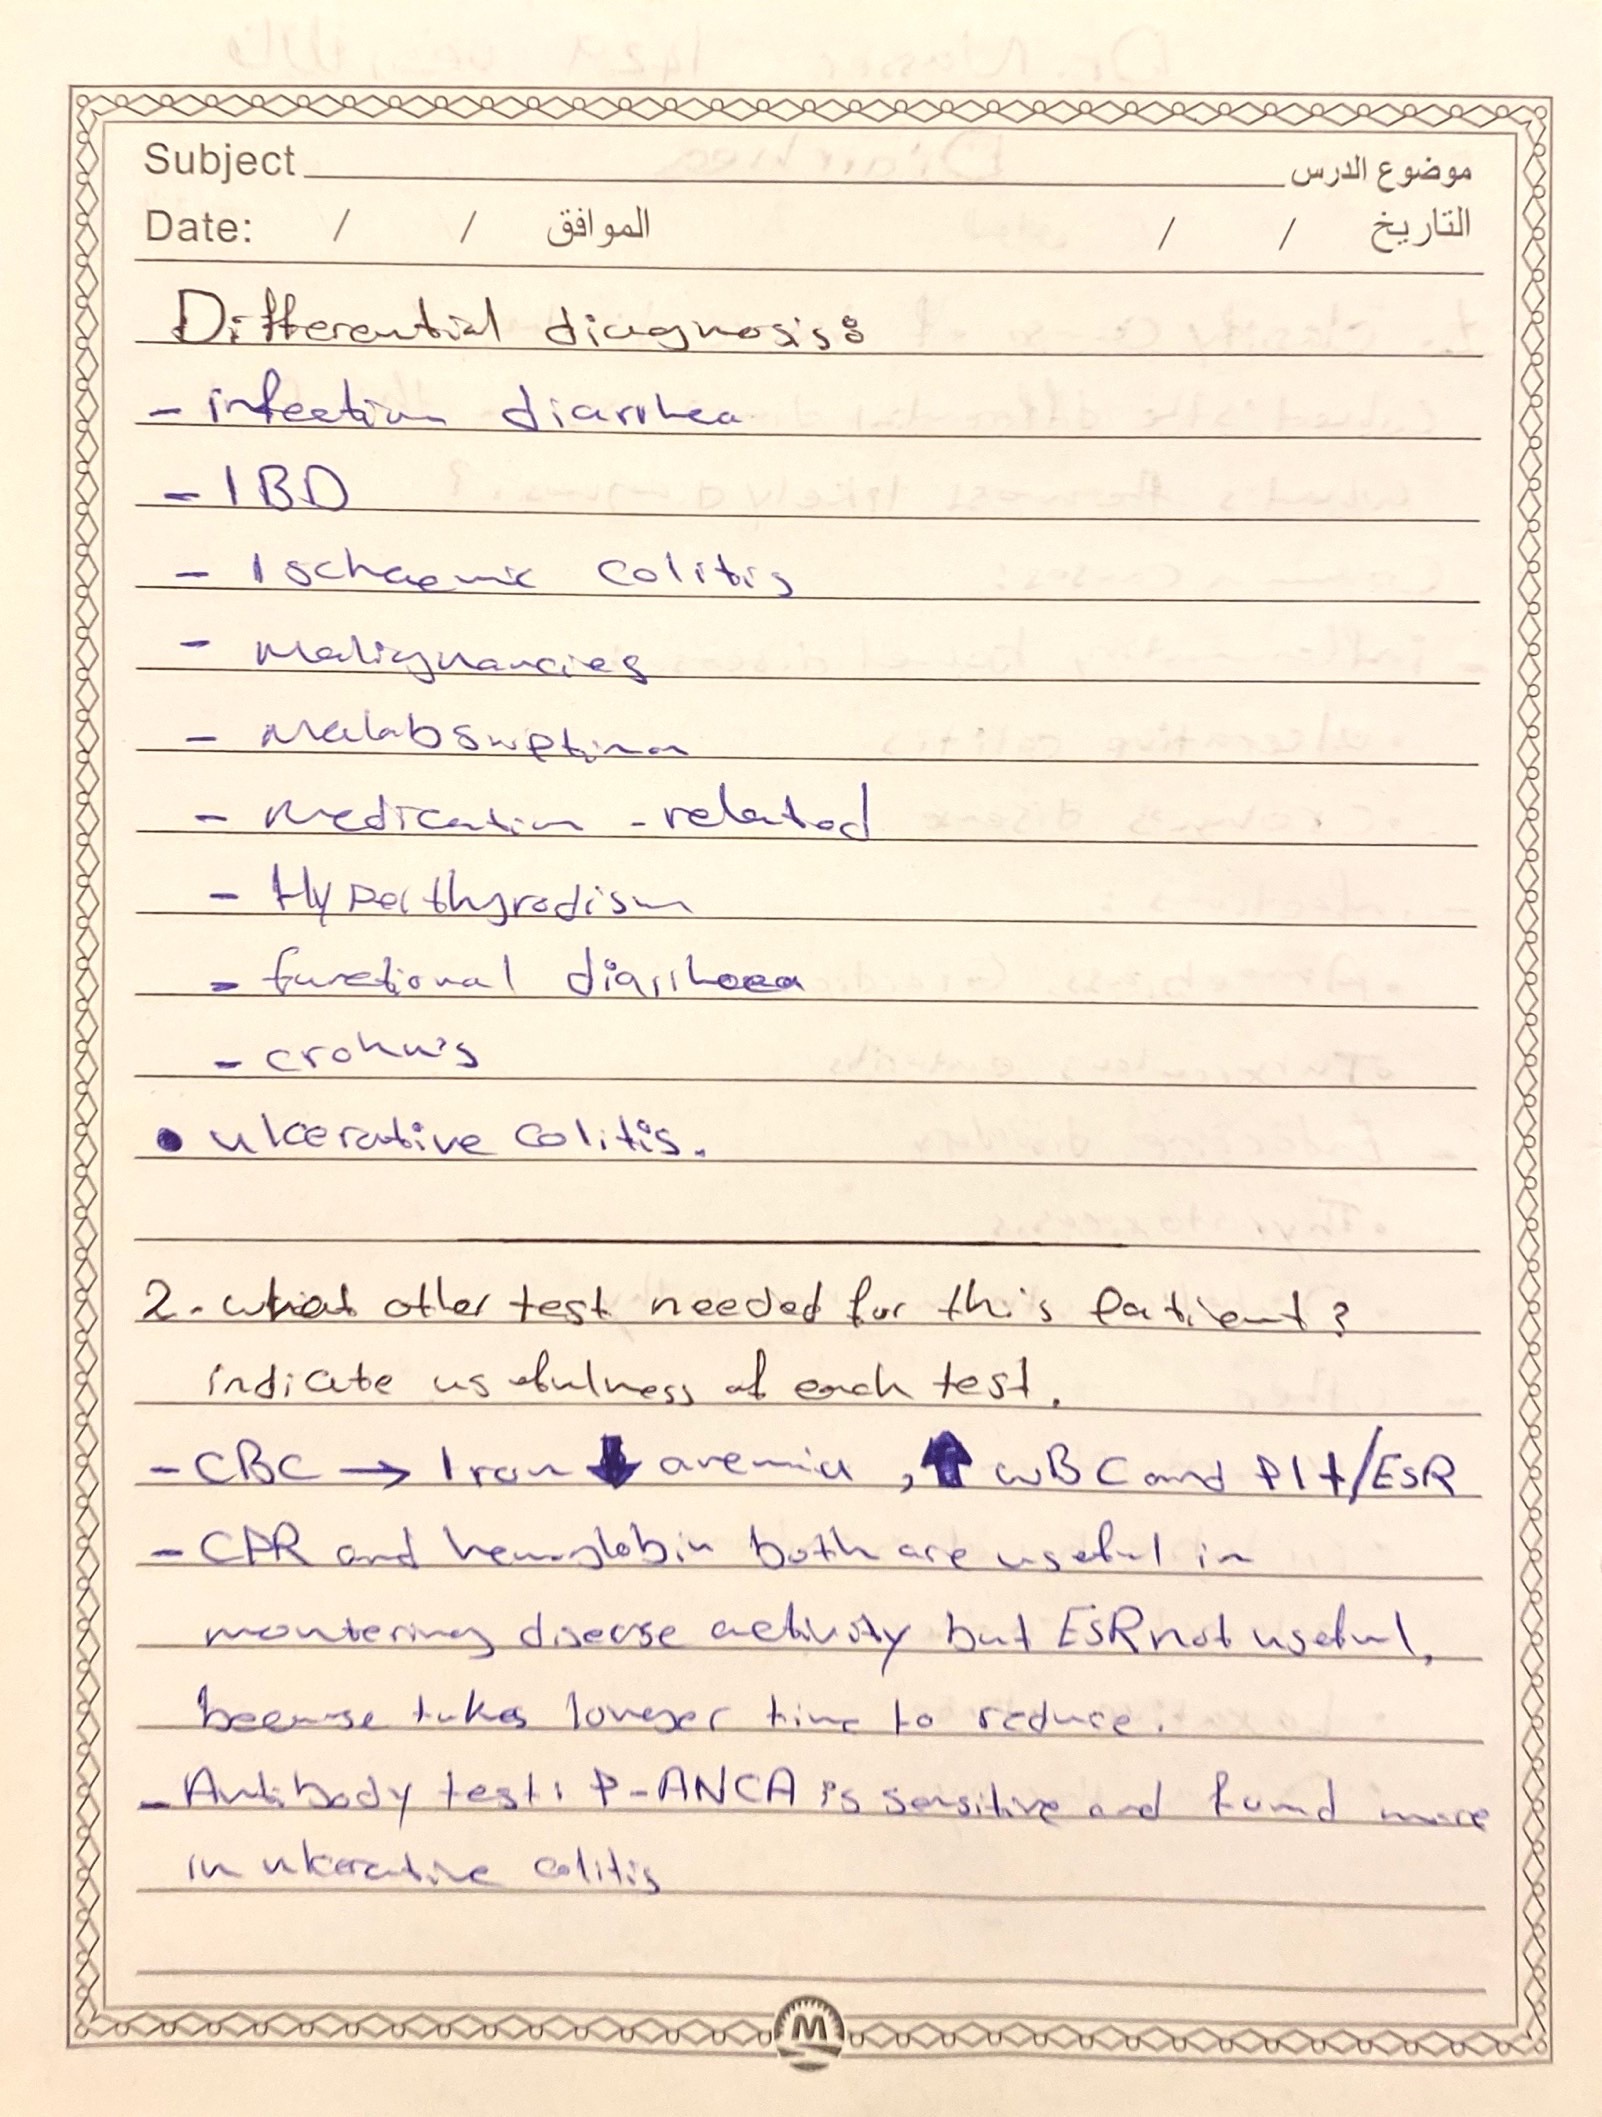 Subject موضوع الدرس
Date: / / الموافق / / التاريخ
Differential diagnosis:
- infection diarrhea
- IBD
- Ischaemic colitis
- Malignancies
- Malabsorption
- Medication - related
- Hyperthyrodism
- functional diarrhoea
- crohn's
• ulcerative colitis.
2. what other test needed for this patient?
indicate usefulness of each test.
- CBC → Iron ⬇ anemia , ⬆ WBC and Plt/ESR
- CPR and hemoglobin both are useful in
montering disease activity but ESR not useful,
because takes longer time to reduce.
- Antibody test: P-ANCA is sensitive and found more
in ulcerative colitis
M